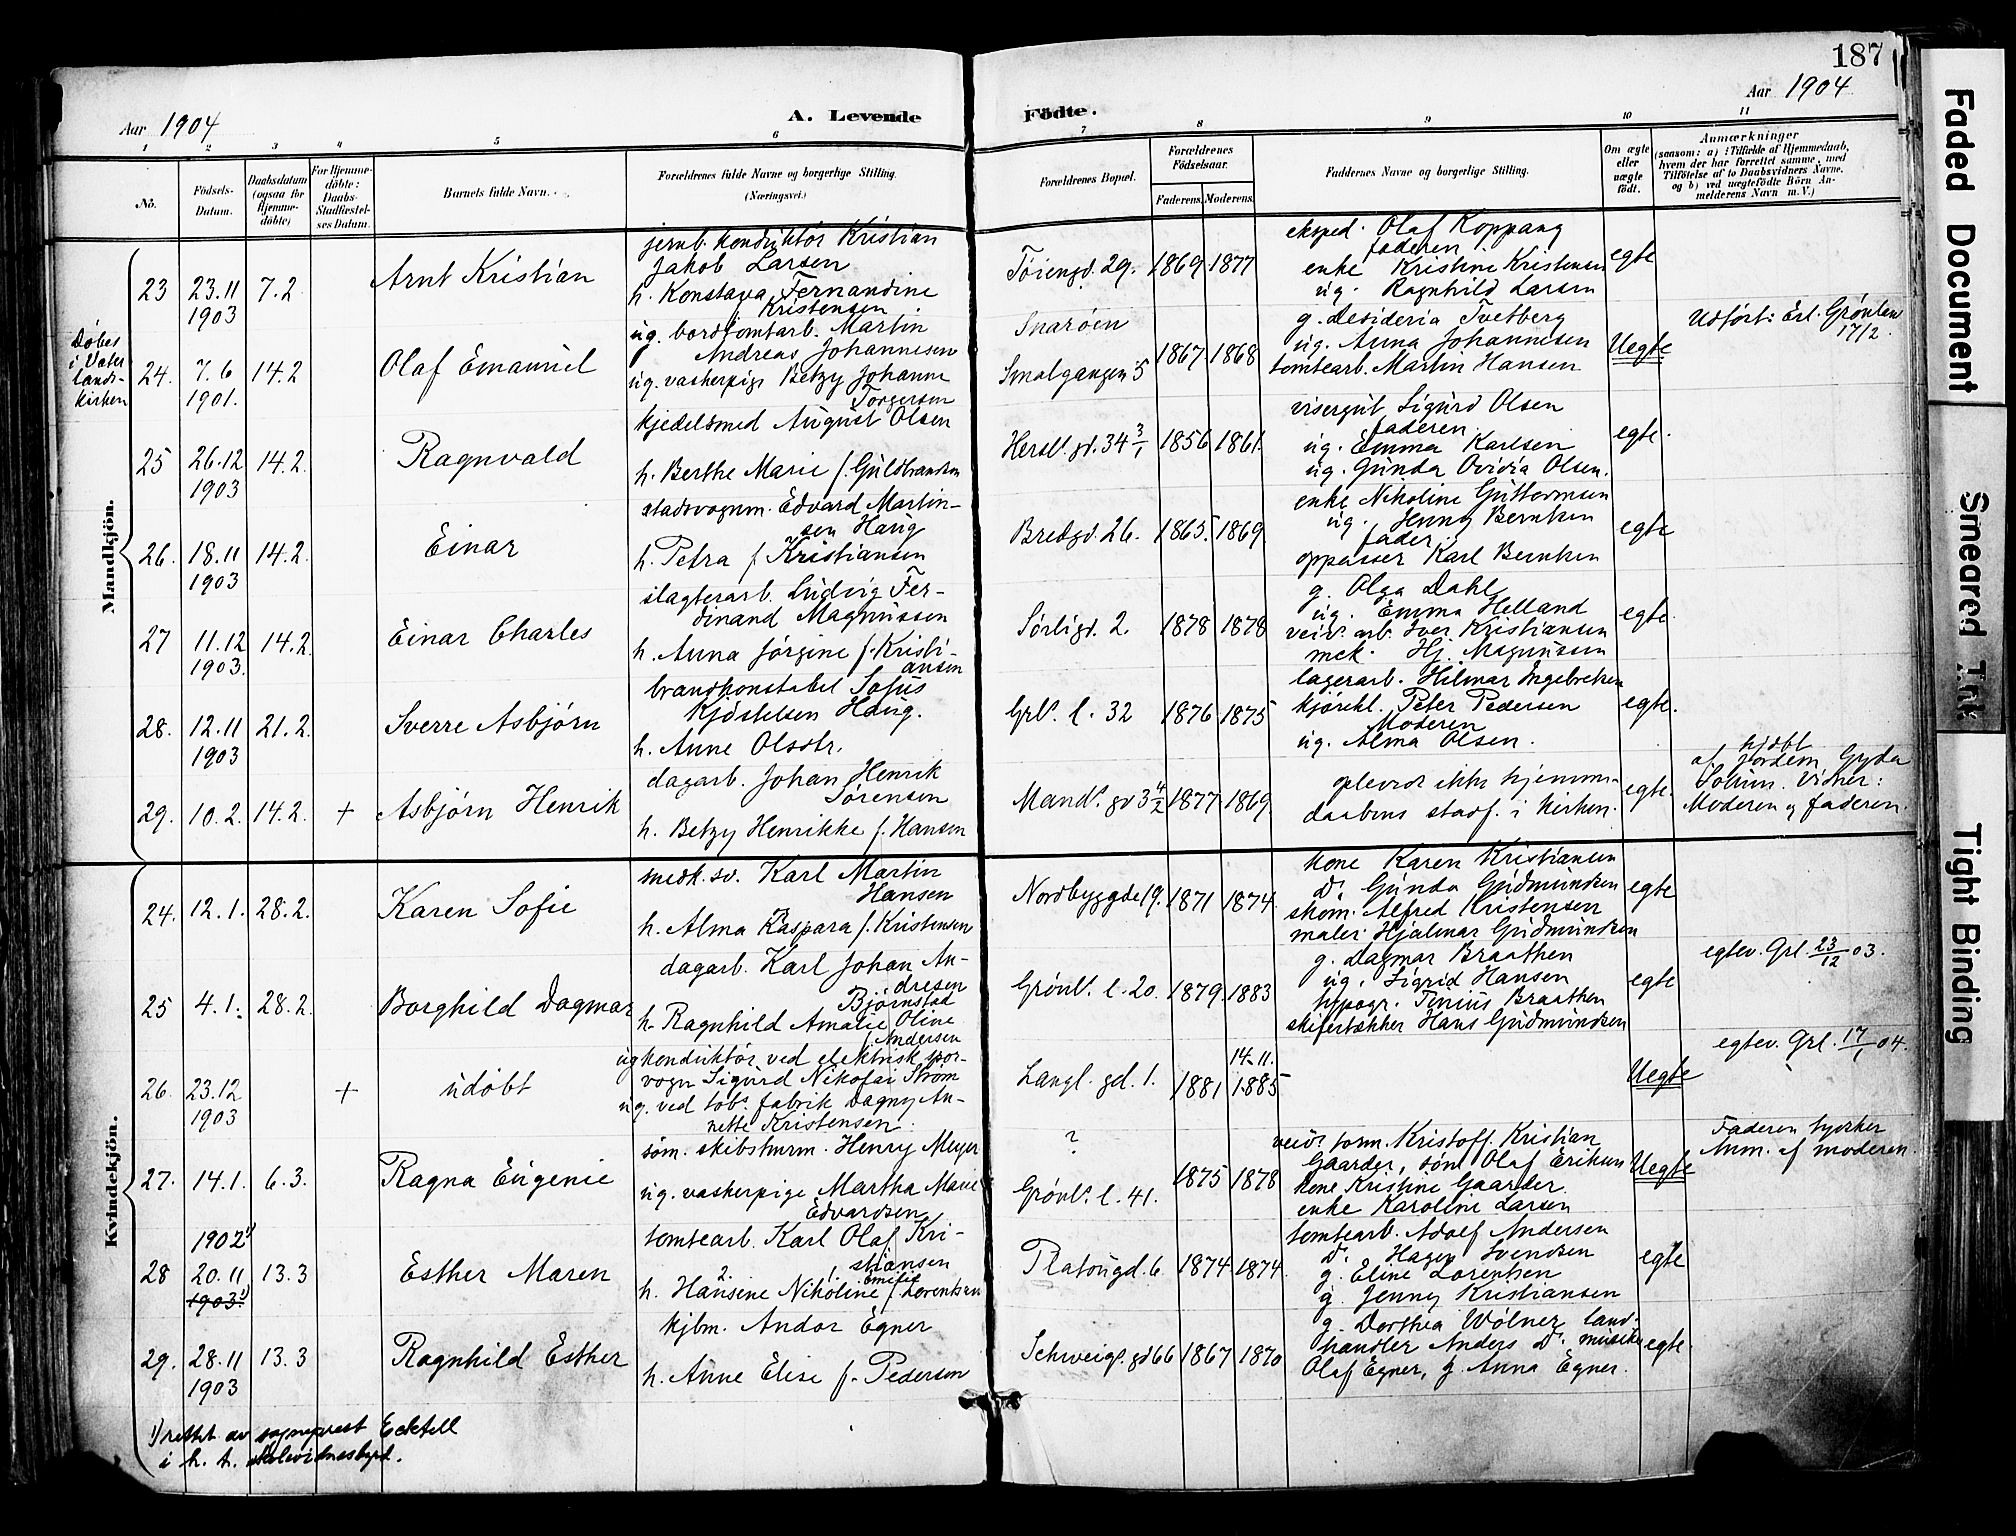 187
Aar 1904
A. Levende Födte.
Aar 1904
1 2 3 4 5 6 7 8 9 10 11
No.
Födsels-Datum.
Daabsdatum (ogsaa for Hjemme-döbte)
For Hjemme-döbte: Daabs-Stadfæstel-ses Datum.
Barnets fulde Navn.
Forældrenes fulde Navne og borgerlige Stilling.
(Næringsvei.)
Forældrenes Bopæl.
Forældrenes Födselsaar.
Faderens. Moderens.
Faddernes Navne og borgerlige Stilling.
Om ægte eller uægte födt.
Anmærkninger
(saasom: a) i Tilfælde af Hjemmedaab,
hvem der har forrettet samme, med
Tilföielse af to Daabsvidners Navne.
og b) ved uægtefödte Börn An-
melderens Navn m. V.)
Mandkjön.
23 23.11 1903 7.2 Arnt Kristian
jernb. konduktör Kristian
Jakob Larsen
h. Konstava Fernandine
f. Kristensen
Töiengd. 29. 1869 1877
eksped. Olaf Koppang
faderen
enke Kristine Kristensen
ug. Ragnhild Larsen
egte
Döbes
i Vater
lands-
kirken
24. 7.6 1901. 14.2 Olaf Emanuel
ug. bordtomtarb. Martin
Andreas Johannesen
ug. vaskerpige Betzy Johanne
Torgersen
Snaröen
Smalgangen 5
1867 1868
g. Desideria Tvetberg
ug. Anna Johannesen
tomtearb. Martin Hansen
Uegte
Udfört: Erl. Grönland
17/2
25 26.12 1903 14.2. Ragnvald
kjedelsmed August Olsen
h. Berthe Marie f. Guldbrandsen
Hersl. gd. 34 3/1 1856 1861.
visergut Sigurd Olsen
faderen
ug. Emma Karlsen
ug. Gunda Ovidia Olsen.
egte.
26. 18.11 1903 14.2. Einar
stadsvognm. Edvard Martin-
sen Haug
h. Petra f. Kristiansen
Bredgd. 26. 1865. 1869
enke Nikoline Guttormsen
ug. Jenny Berntsen
fader.
oppasser Karl Berntsen
egte
27 11.12 1903. 14.2. Einar Charles
slagterarb. Ludvig Fer-
dinand Magnussen
h. Anna Jörgine f. Kristi-
ansen
Sörligd. 2. 1878 1878
g. Olga Dahl
ug. Emma Helland
veiv. arb. Iver Kristiansen
mek. Hj. Magnussen
egte.
28. 12.11 1903 21.2. Sverre Asbjörn
brandkonstabel Sofus
Kjöstelsen Haug.
h. Anne Olsdtr.
Grl. l. 32 1876 1875
lagerarb. Hilmar Ingebretsen
kjörekl. Peter Pedersen
Moderen
ug. Alma Olsen.
egte.
29. 10.2. 14.2. + Asbjörn Henrik
dagarb. Johan Henrik
Sörensen
h. Betzy Henrikke f. Hansen
Mandl. gd 3 4/2 1877 1869.
oplevede ikke hjemme-
daabens stadf. i kirken.
egte.
hjdbt
af jordem. Gyda
Vidner:
Moderen og faderen.
Kvindekjön.
24. 12.1. 28.2. Karen Sofie
snedk. sv. Karl Martin
Hansen
h. Alma Kaspara f. Kristensen
Nordbyggde 19. 1871 1874.
kone Karen Kristiansen
D. Gunda Gudmundsen
skom. Alfred Kristensen
maler Hjalmar Gudmundsen
egte
25 4.1. 28.2. Borghild Dagmar
dagarb. Karl Johan An-
dresen
Björnstad
h. Ragnhild Amalie Oline
f. Andersen
Grönl. l. 20. 1879. 1883
g. Dagmar Braathen
ug. Sigrid Hansen
typogr. Tinius Braathen
skifertækker Hans Gudmundsen
egte
egtev. Grl. 23/12 03.
26. 23.12 1903 + udöbt
ug konduktör ved elektrisk spor-
vogn Sigurd Nikolai Ström
ug. ved tob. fabrik Dagny An-
nette Kristensen.
Langl. gd. 1. 1881 14.11. 1885
Uegte
egtev. Grl. 17/1 04.
27. 14.1. 6.3. Ragna Eugenie
söm. skibstürm. Henry Meyer
ug. vaskerpige Martha Marie
Edvardsen
?
Grönl. l. 41. 1875 1878
veiv. form. Kristoff. Kristian
Gaarder, söm. Olaf Eriksen
kone Kristine Gaarder.
enke Karoline Larsen
Uegte
Faderen tysker
Anm. af moderen.
28 1902 1) 20.11 1903 1) 13.3 Esther Maren
tomtearb. Karl Olaf Kri-
stiansen
2. 1. Emilie
h. Hansine Nikoline f. Lorentsen
Platougd. 6. 1874 1874.
tomtearb. Adolf Andersen
D. Hagen Svendsen
g. Eline Lorentsen
g. Jenny Kristiansen
egte
29. 28.11 1903 13.3 Ragnhild Esther
kjbm. Andor Egner
h. Anne Elise f. Pedersen
Schweig. gd 66 1867 1870
g. Dorthea Wölner land-
handler Anders D. musiker
Olaf Egner, g. Anna Egner.
egte.
1) rettet av sogneprest Ecktell
i h. t. skolevidnesbyrd.
Faded Document
Smeared Ink.
Tight Binding